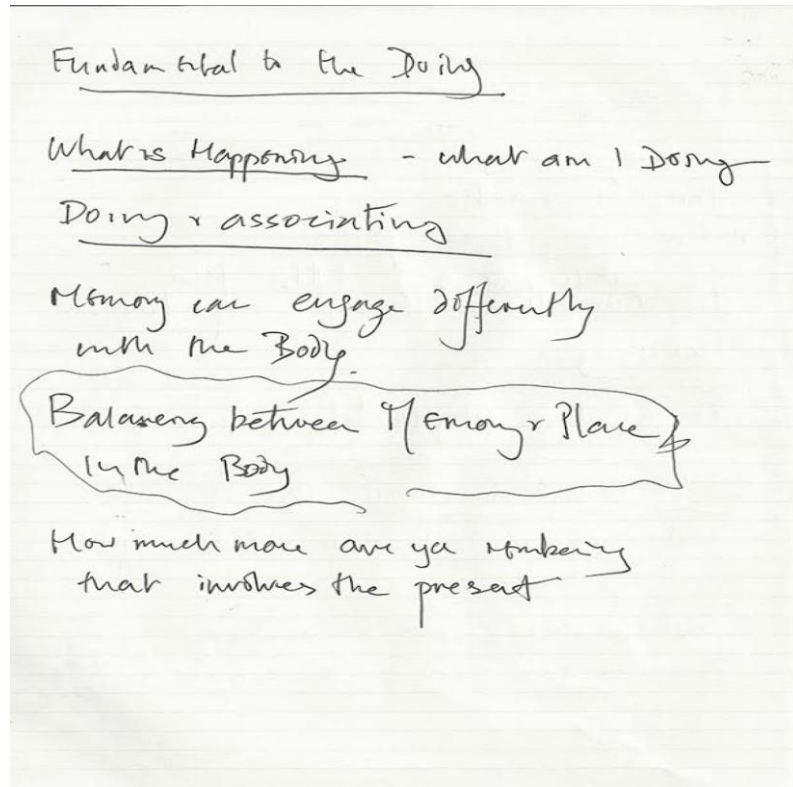 Fundamental to the Doing
What is Happening - what am I Doing
Doing + associating
Memory can engage differently
with the Body.
Balancing between Memory + Place
In the Body
How much more are ya rembering
that involves the present